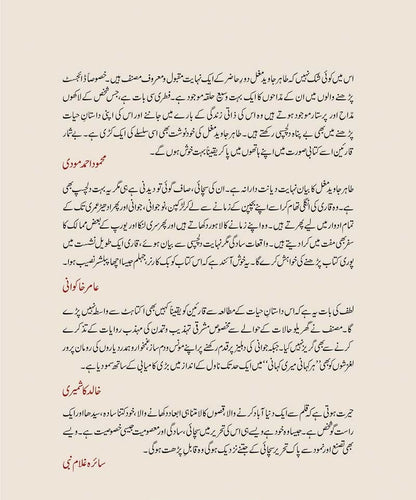 اس میں کوئی شک نہیں کہ طاہر جاوید مغل دورِ حاضر کے ایک نہایت مقبول و معروف مصنف ہیں۔ خصوصاً ڈائجسٹ
پڑھنے والوں میں ان کے مداحوں کا ایک بہت وسیع حلقہ موجود ہے۔ فطری سی بات ہے، جس شخص کے لاکھوں
مداح اور پرستار موجود ہوتے ہیں وہ اس کی ذاتی زندگی کے بارے میں جاننے اور اس کی اپنی داستانِ حیات
پڑھنے میں بھی بے پناہ دلچسپی رکھتے ہیں۔ طاہر جاوید مغل کی خود نوشت بھی اسی سلسلے کی ایک کڑی ہے۔ بے شمار
قارئین اسے کتابی صورت میں اپنے ہاتھوں میں پا کر یقیناً بہت خوش ہوں گے۔
محمود احمد مودی
طاہر جاوید مغل کا بیان نہایت دیانت دارانہ ہے۔ ان کی سچائی، صاف گوئی تو دیدنی ہے ہی مگر یہ بہت دلچسپ بھی
ہے۔ وہ قاری کی انگلی تھام کر اسے اپنے بچپن کے زمانے سے لے کر لڑکپن، نوجوانی، جوانی اور پھر ادھیڑ عمری تک کے
تمام ادوار میں لیے پھرتے ہیں۔ وہ اپنے زمانے کا لاہور دکھاتے ہیں اور پھر سری لنکا اور یورپ کے بعض ممالک کا
سفر بھی مفت میں کرا دیتے ہیں۔ واقعات سادگی مگر نہایت دلچسپی سے بیان ہوئے، قاری ایک طویل نشست میں
پوری کتاب پڑھنے کی خواہش کرے گا۔ یہ خوش آئند ہے کہ اس کتاب کو بک کارنر جہلم جیسا اچھا پبلشر نصیب ہوا۔
عامر خاکوانی
لطف کی بات یہ ہے کہ اس داستانِ حیات کے مطالعہ سے قارئین کو یقیناً کہیں بھی اکتاہٹ سے واسطہ نہیں پڑے
گا۔ مصنف نے گھریلو حالات کے حوالے سے مخصوص مشرقی تہذیب و تمدن کی مہذب روایات کے تذکرے
کرنے سے بھی گریز نہیں کیا۔ جبکہ جوانی کی دہلیز پر قدم رکھنے پر اپنے مونس و دم ساز غمخوار و ہمدرد یاروں کی رومان پرور
لغزشوں کو بھی ”ہر کہانی میری کہانی“ میں ایک حد تک ناول کے انداز میں بڑی کامیابی کے ساتھ سمو دیا ہے۔
خالد کاشمیری
حیرت ہوتی ہے کہ قلم سے ایک دنیا آباد کرنے والا، قصوں کا لامتناہی ابعاد دکھانے والا، خود کتنا سادہ، سیدھا اور ایک
راست گو شخص ہے۔ جیسا وہ خود ہے ویسے ہی اس کی تحریر میں سچائی، سادگی اور معصومیت جیسی خصوصیت ہے۔ ویسے
بھی تصنع اور نمود سے پاک تحریر سچائی کے جتنے نزدیک ہوگی وہ قابلِ پڑھت ہوگی۔
سائرہ غلام نبی